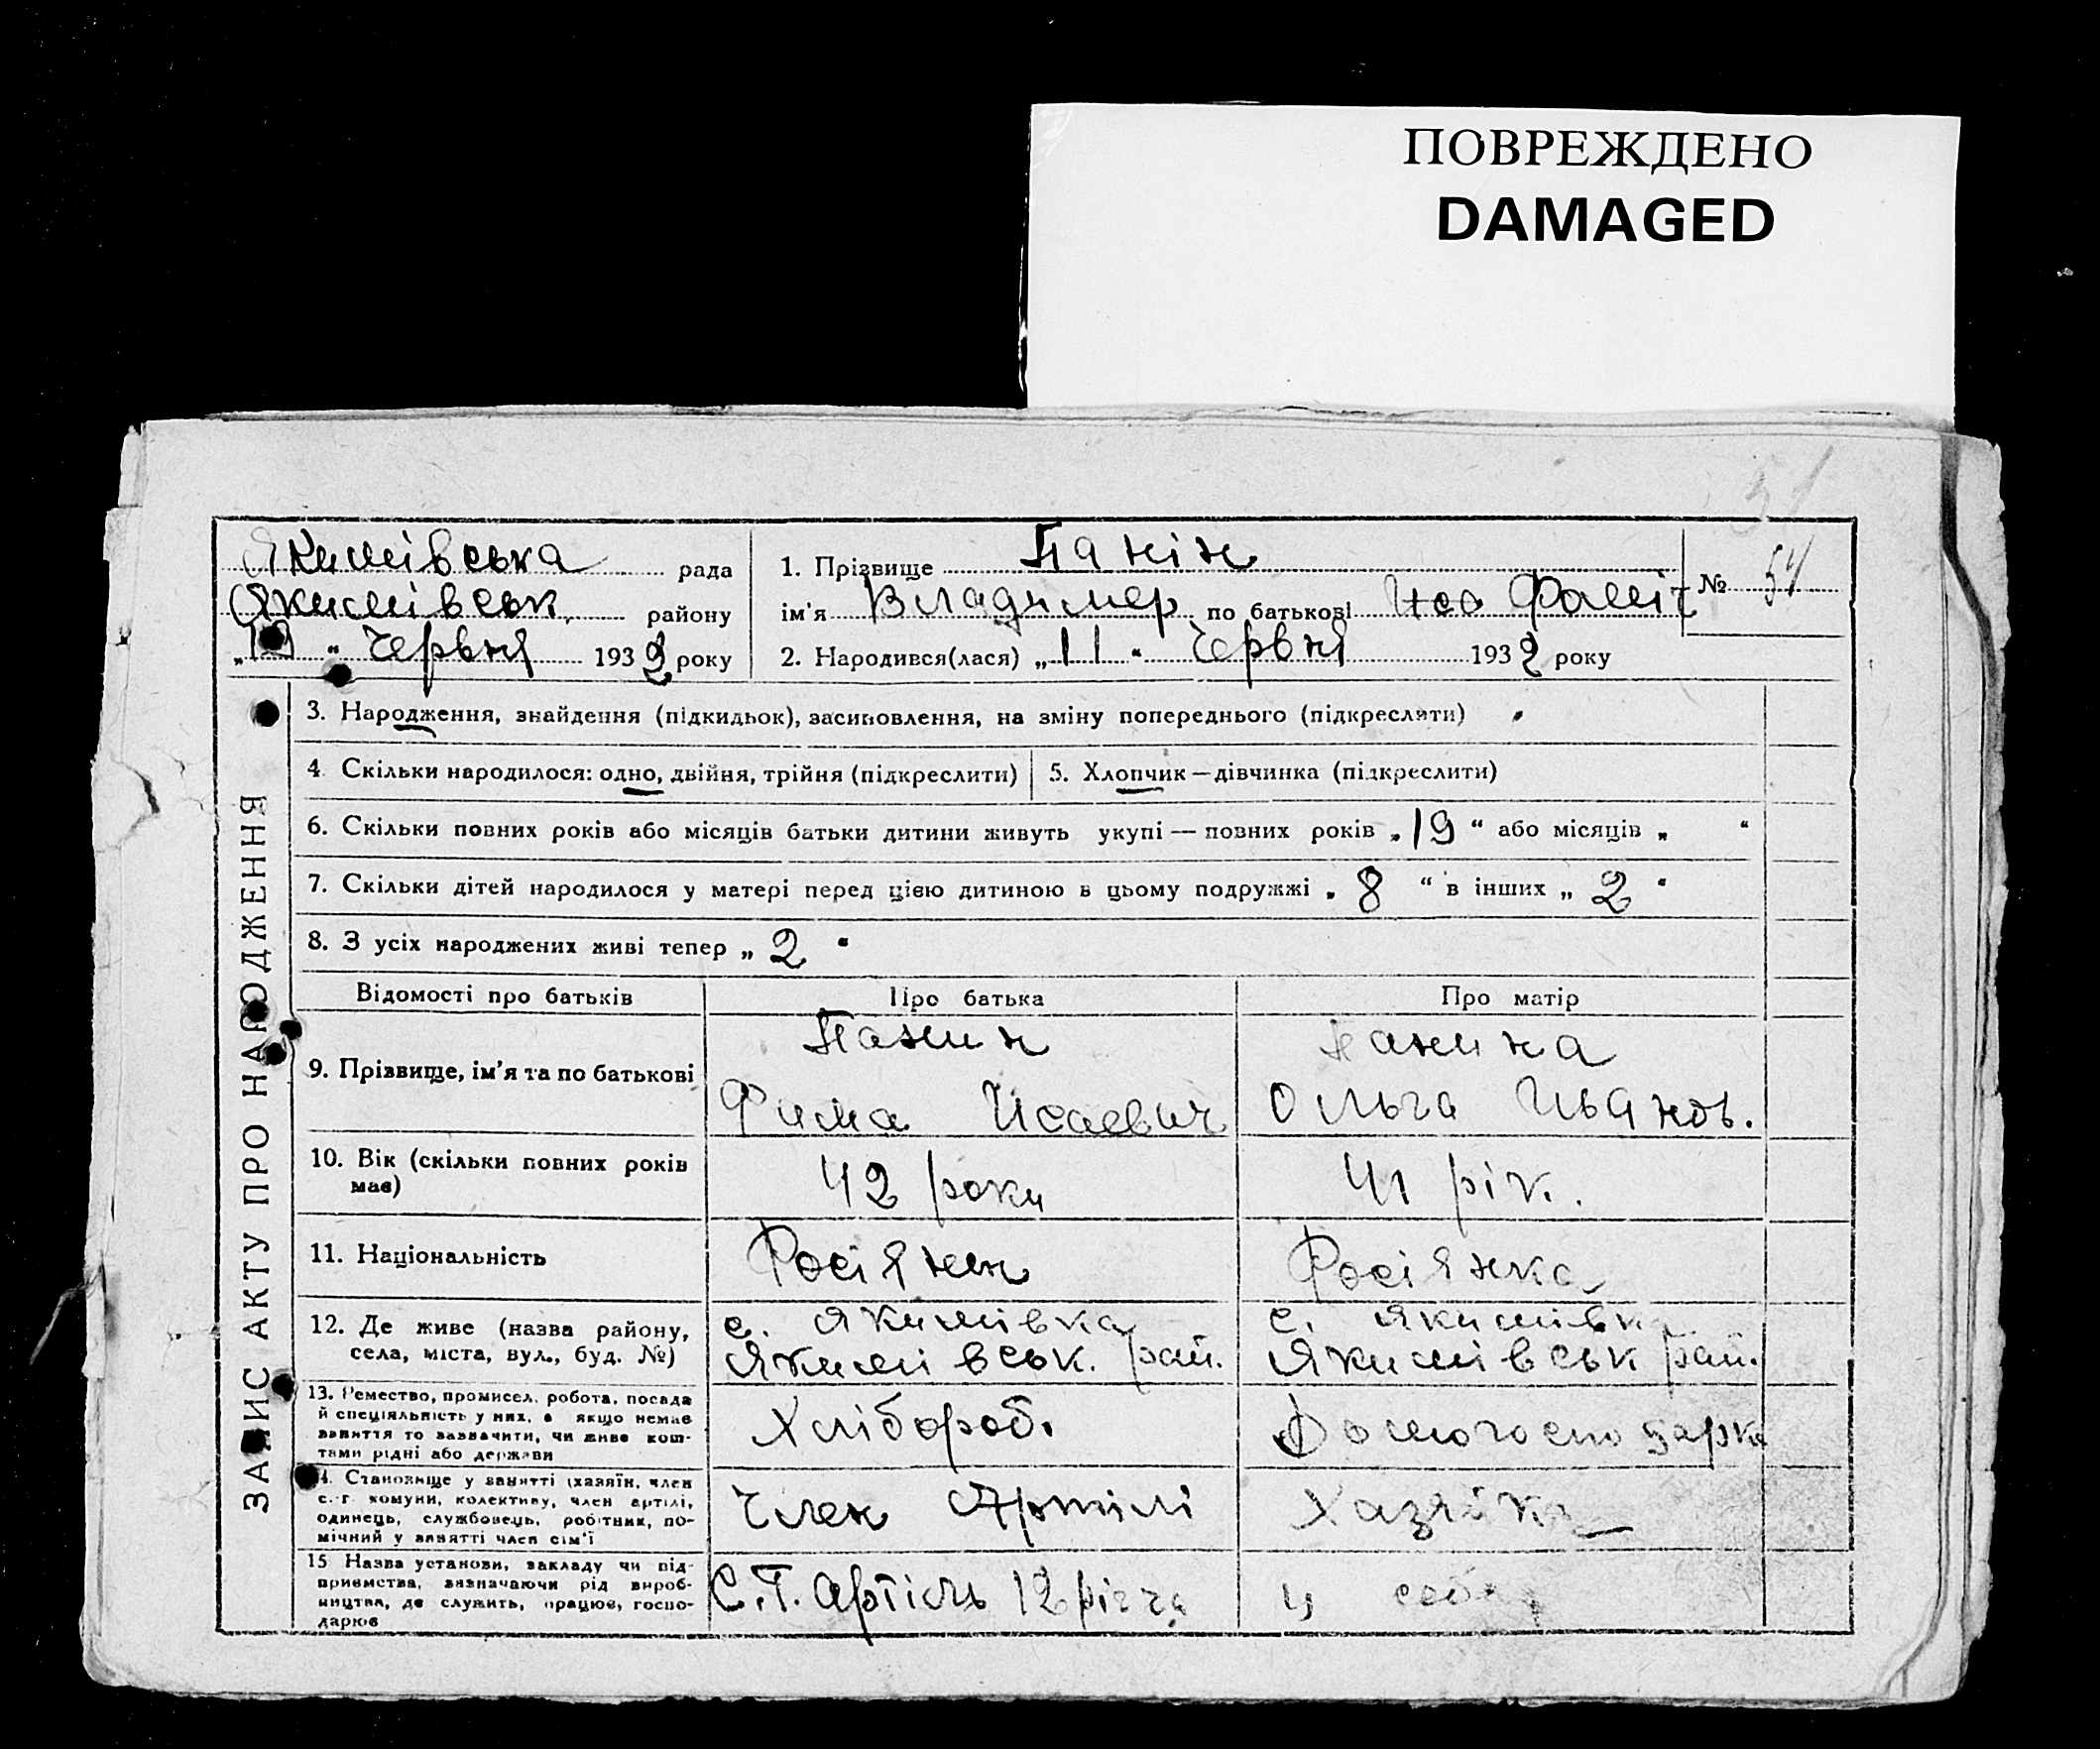 ПОВРЕЖДЕНО
DAMAGED
51
Якимівська рада
Якимівськ. району
„19“ Червня 1932 року
1. Прізвище Панін
ім'я Владимер по батькові Исо Фоміч
№ 51
2. Народився(лася) „11“ Червня 1932 року
ЗАПИС АКТУ ПРО НАРОДЖЕННЯ
3. Народження, знайдення (підкидьок), засиновлення, на зміну попереднього (підкреслити)
4. Скільки народилося: одно, двійня, трійня (підкреслити)
5. Хлопчик — дівчинка (підкреслити)
6. Скільки повних років або місяців батьки дитини живуть укупі — повних років „19“ або місяців „ “
7. Скільки дітей народилося у матері перед цією дитиною в цьому подружжі „8“ в інших „2“
8. З усіх народжених живі тепер „2“
Відомості про батьків
Про батька
Про матір
9. Прізвище, ім'я та по батькові
Панин
Фима Исаевич
Панина
Ольга Иванов.
10. Вік (скільки повних років
має)
42 роки
41 рік.
11. Національність
Росіянен
Росіянка
12. Де живе (назва району,
села, міста, вул., буд. №)
с. Якимівка
Якимівськ. рай.
с. Якимівка
Якимівськ рай.
13. Ремество, промисел, робота, посада
й спеціяльність у них, а якщо немає
заняття то зазначити, чи живе кош-
тами рідні або держави
Хлібороб.
Домогосподарка
14. Становище у занятті (хазяїн, член
с.-г. комуни, колективу, член артілі,
одинець, службовець, робітник, по-
мічний у занятті член сім'ї
Член Артілі
Хазяйка
15 Назва установи, закладу чи під-
приємства, зазначаючи рід вироб-
ництва, де служить, працює, госпо-
дарює
С.Г. Артіль 12 річчя
У себе